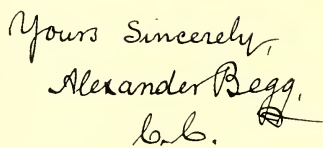 Yours Sincerely,
Alexander Begg.
C.C.